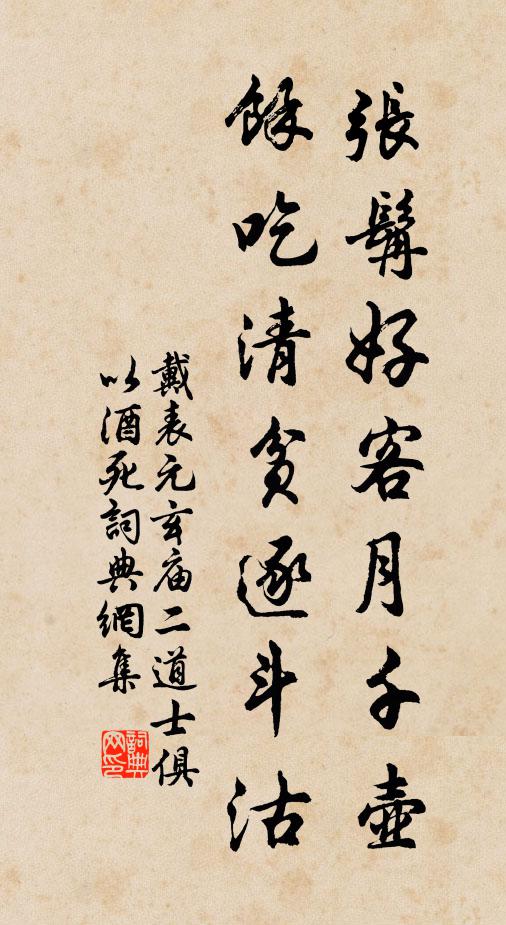 張髯好客月千壺
餘吃清貧逐斗沽
戴表元玄庙二道士俱
以酒死詞典網集
詞典网印